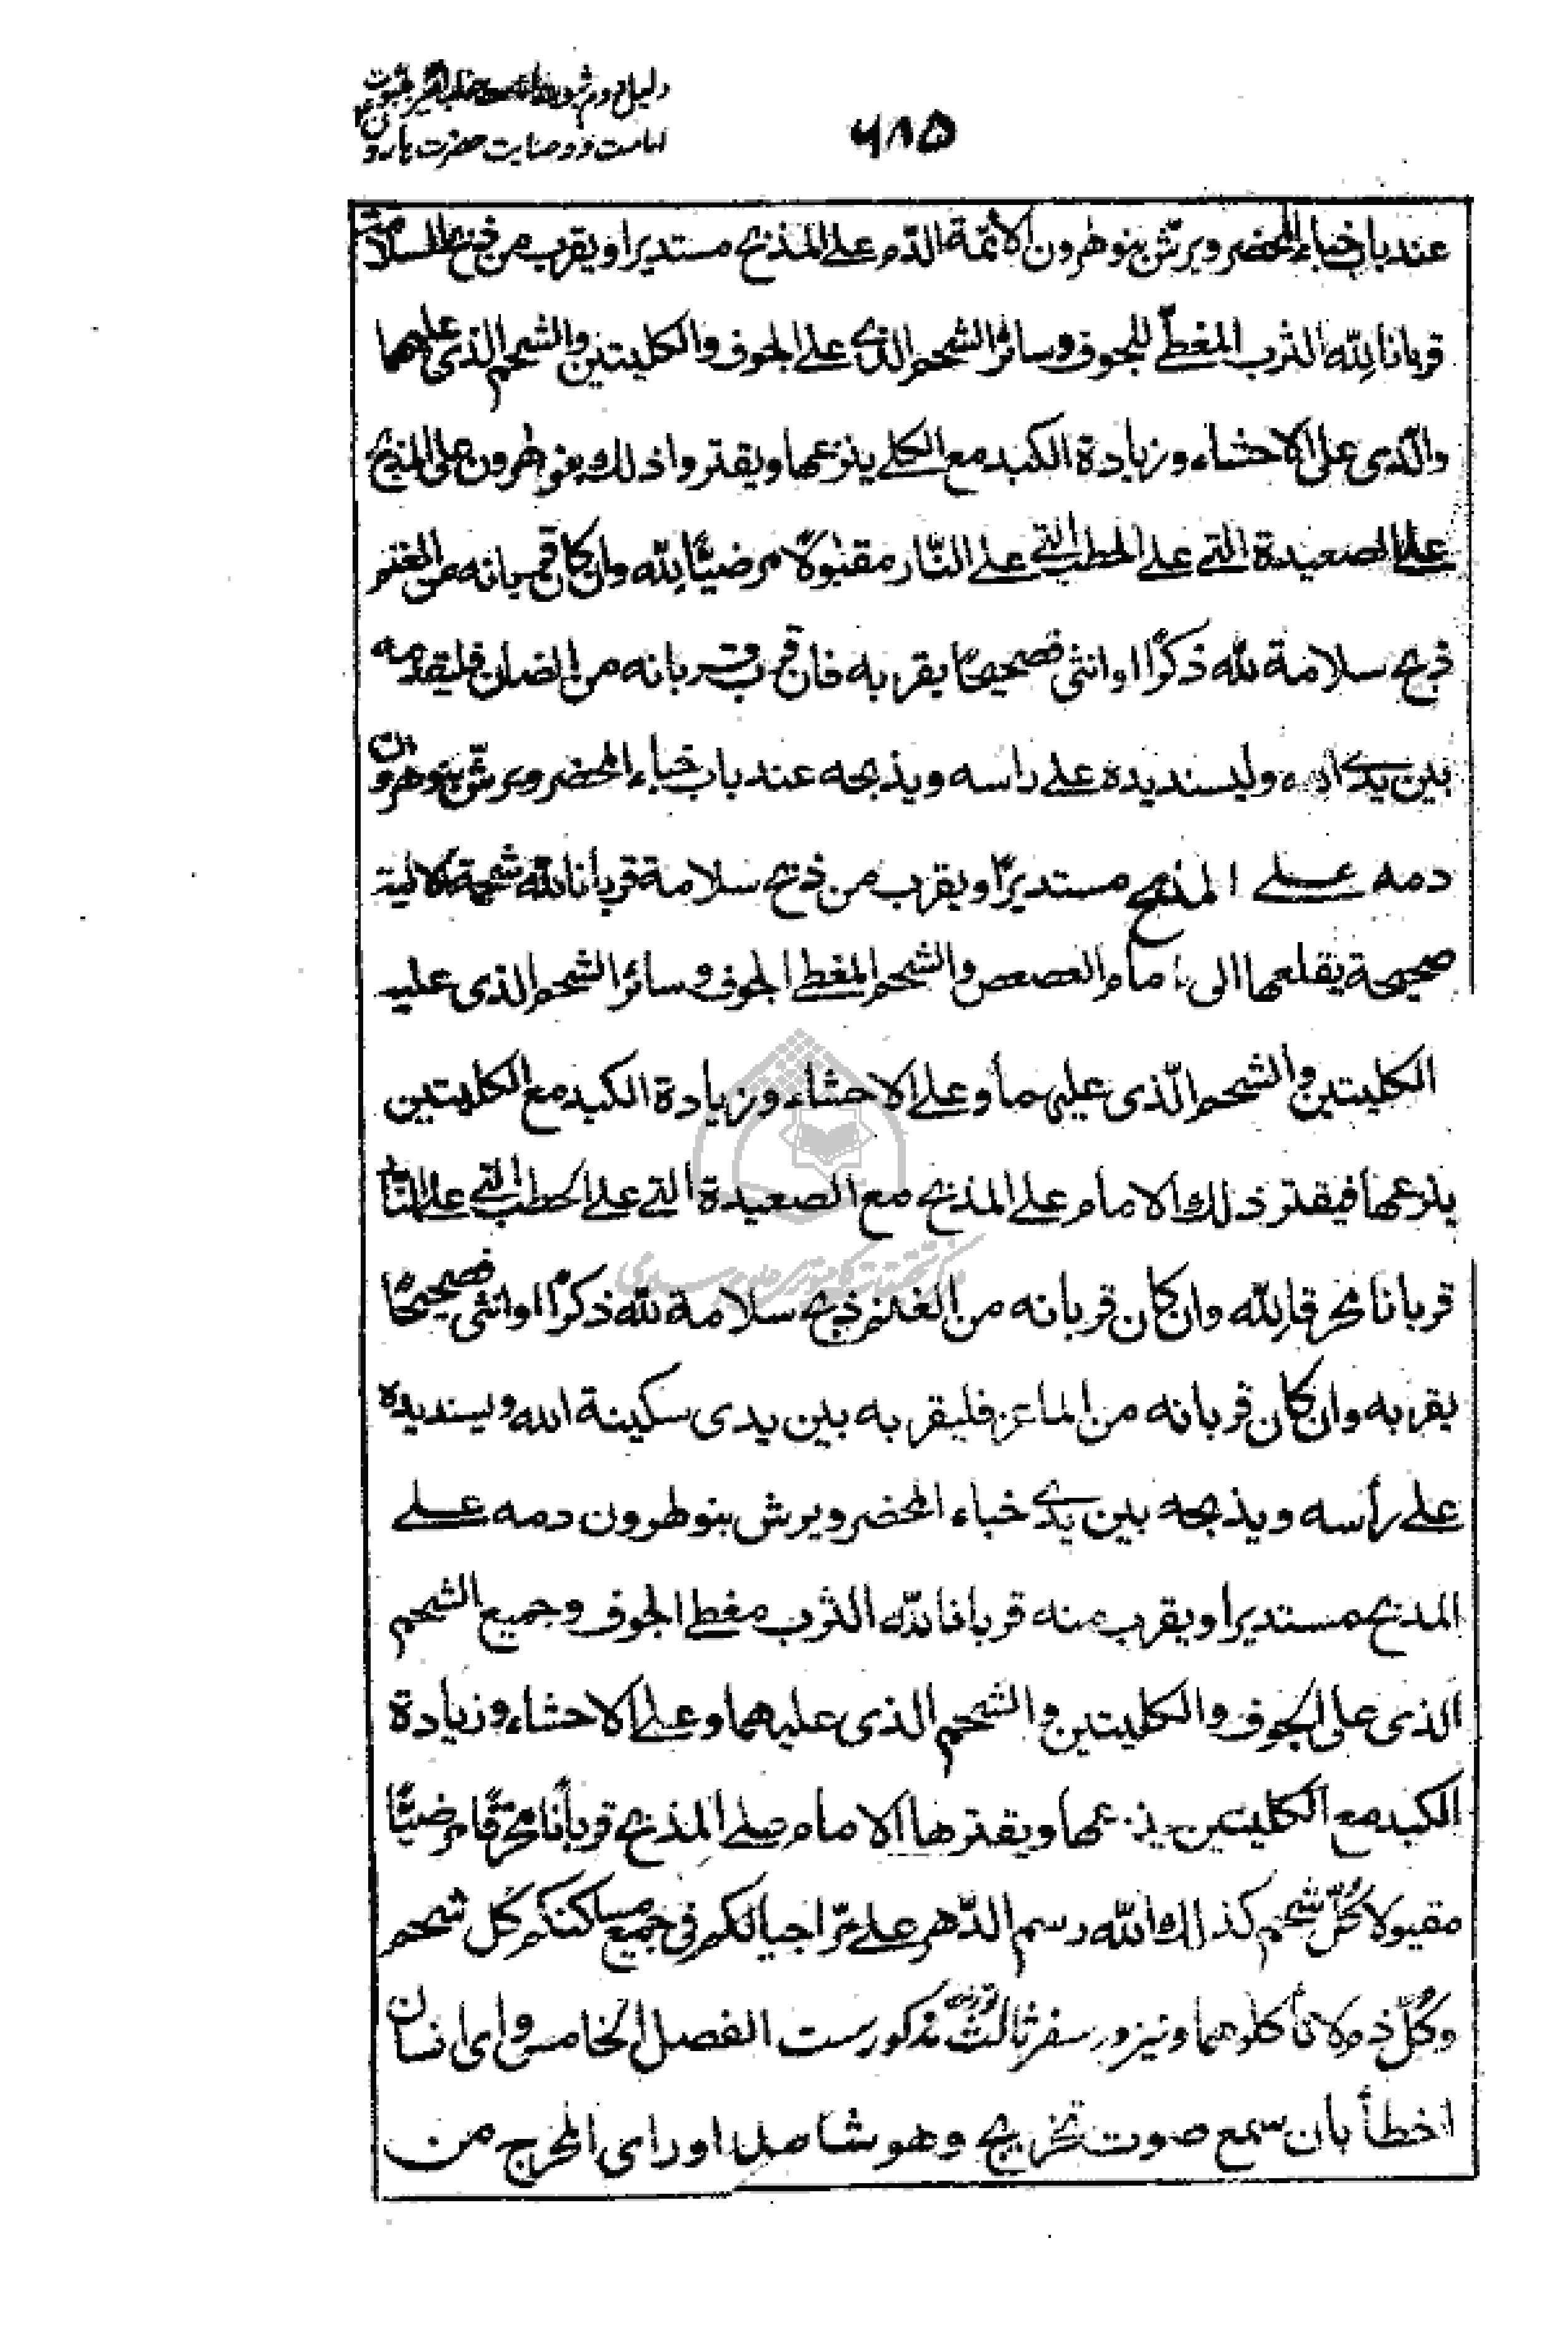 دلیل دوم
۶۸۵
امامت و وصایت حضرت هارون
عند باب خباء المحضر ويرش بنو هرون الائمة الدم على المذبح مستديرا ويقرب من ذبح السلامة
قربانا لله الثرب المغطّى للجوف وسائر الشحم الذى على الجوف والكليتين والشحم الذى عليهما
والّذى على الاحشاء وزيادة الكبد مع الكلى ينزعها ويقتروا ذلك بنو هرون على المذبح
على الصعيدة التى على الحطب التى على النّار مقبولًا مرضيًّا لله وان كان قربانه من الغنم
ذبح سلامة لله ذكرًا او انثى فصحيحًا يقربه فان قرب قربانه من الضان فليقدمه
بين يدى الله وليسند يده على راسه ويذبحه عند باب خباء المحضر ويرشّ بنو هرون
دمه على المذبح مستديرًا ويقرب من ذبح سلامة قربانا لله شحمه الالية
صحيحة يقلعها الى امام العصعص والشحم المغطى الجوف وسائر الشحم الذى عليه
الكليتين والشحم الّذى عليهما وعلى الاحشاء وزيادة الكبد مع الكليتين
ينزعها فيقتر ذلك الامام على المذبح مع الصعيدة التى على الحطب التى على النار
قربانا محرقا لله وان كان قربانه من الغنم ذبح سلامة لله ذكرًا او انثى فصحيحًا
يقربه وان كان قربانه من الماعز فليقربه بين يدى سكينة الله ويسند يده
على رأسه ويذبحه بين يدى خباء المحضر ويرش بنو هرون دمه على
المذبح مستديرا ويقرب منه قربانا لله الثرب مغطى الجوف وجميع الشحم
الذى على الجوف والكليتين والشحم الذى عليهما وعلى الاحشاء وزيادة
الكبد مع الكليتين ينزعها ويقترها الامام على المذبح قربانًا محرقًا مرضيًّا
مقبولا كلّ شحم كذلك لله رسم الدّهر على مرّ اجيالكم فى جميع مساكنكم كل شحم
وكلّ دم لا تأكلوهما ونيز در سفر ثالث تورية مذكورست الفصل الخامس واى انسان
اخطأ بان سمع صوت تخريج وهو شاهد او راى المحرج من